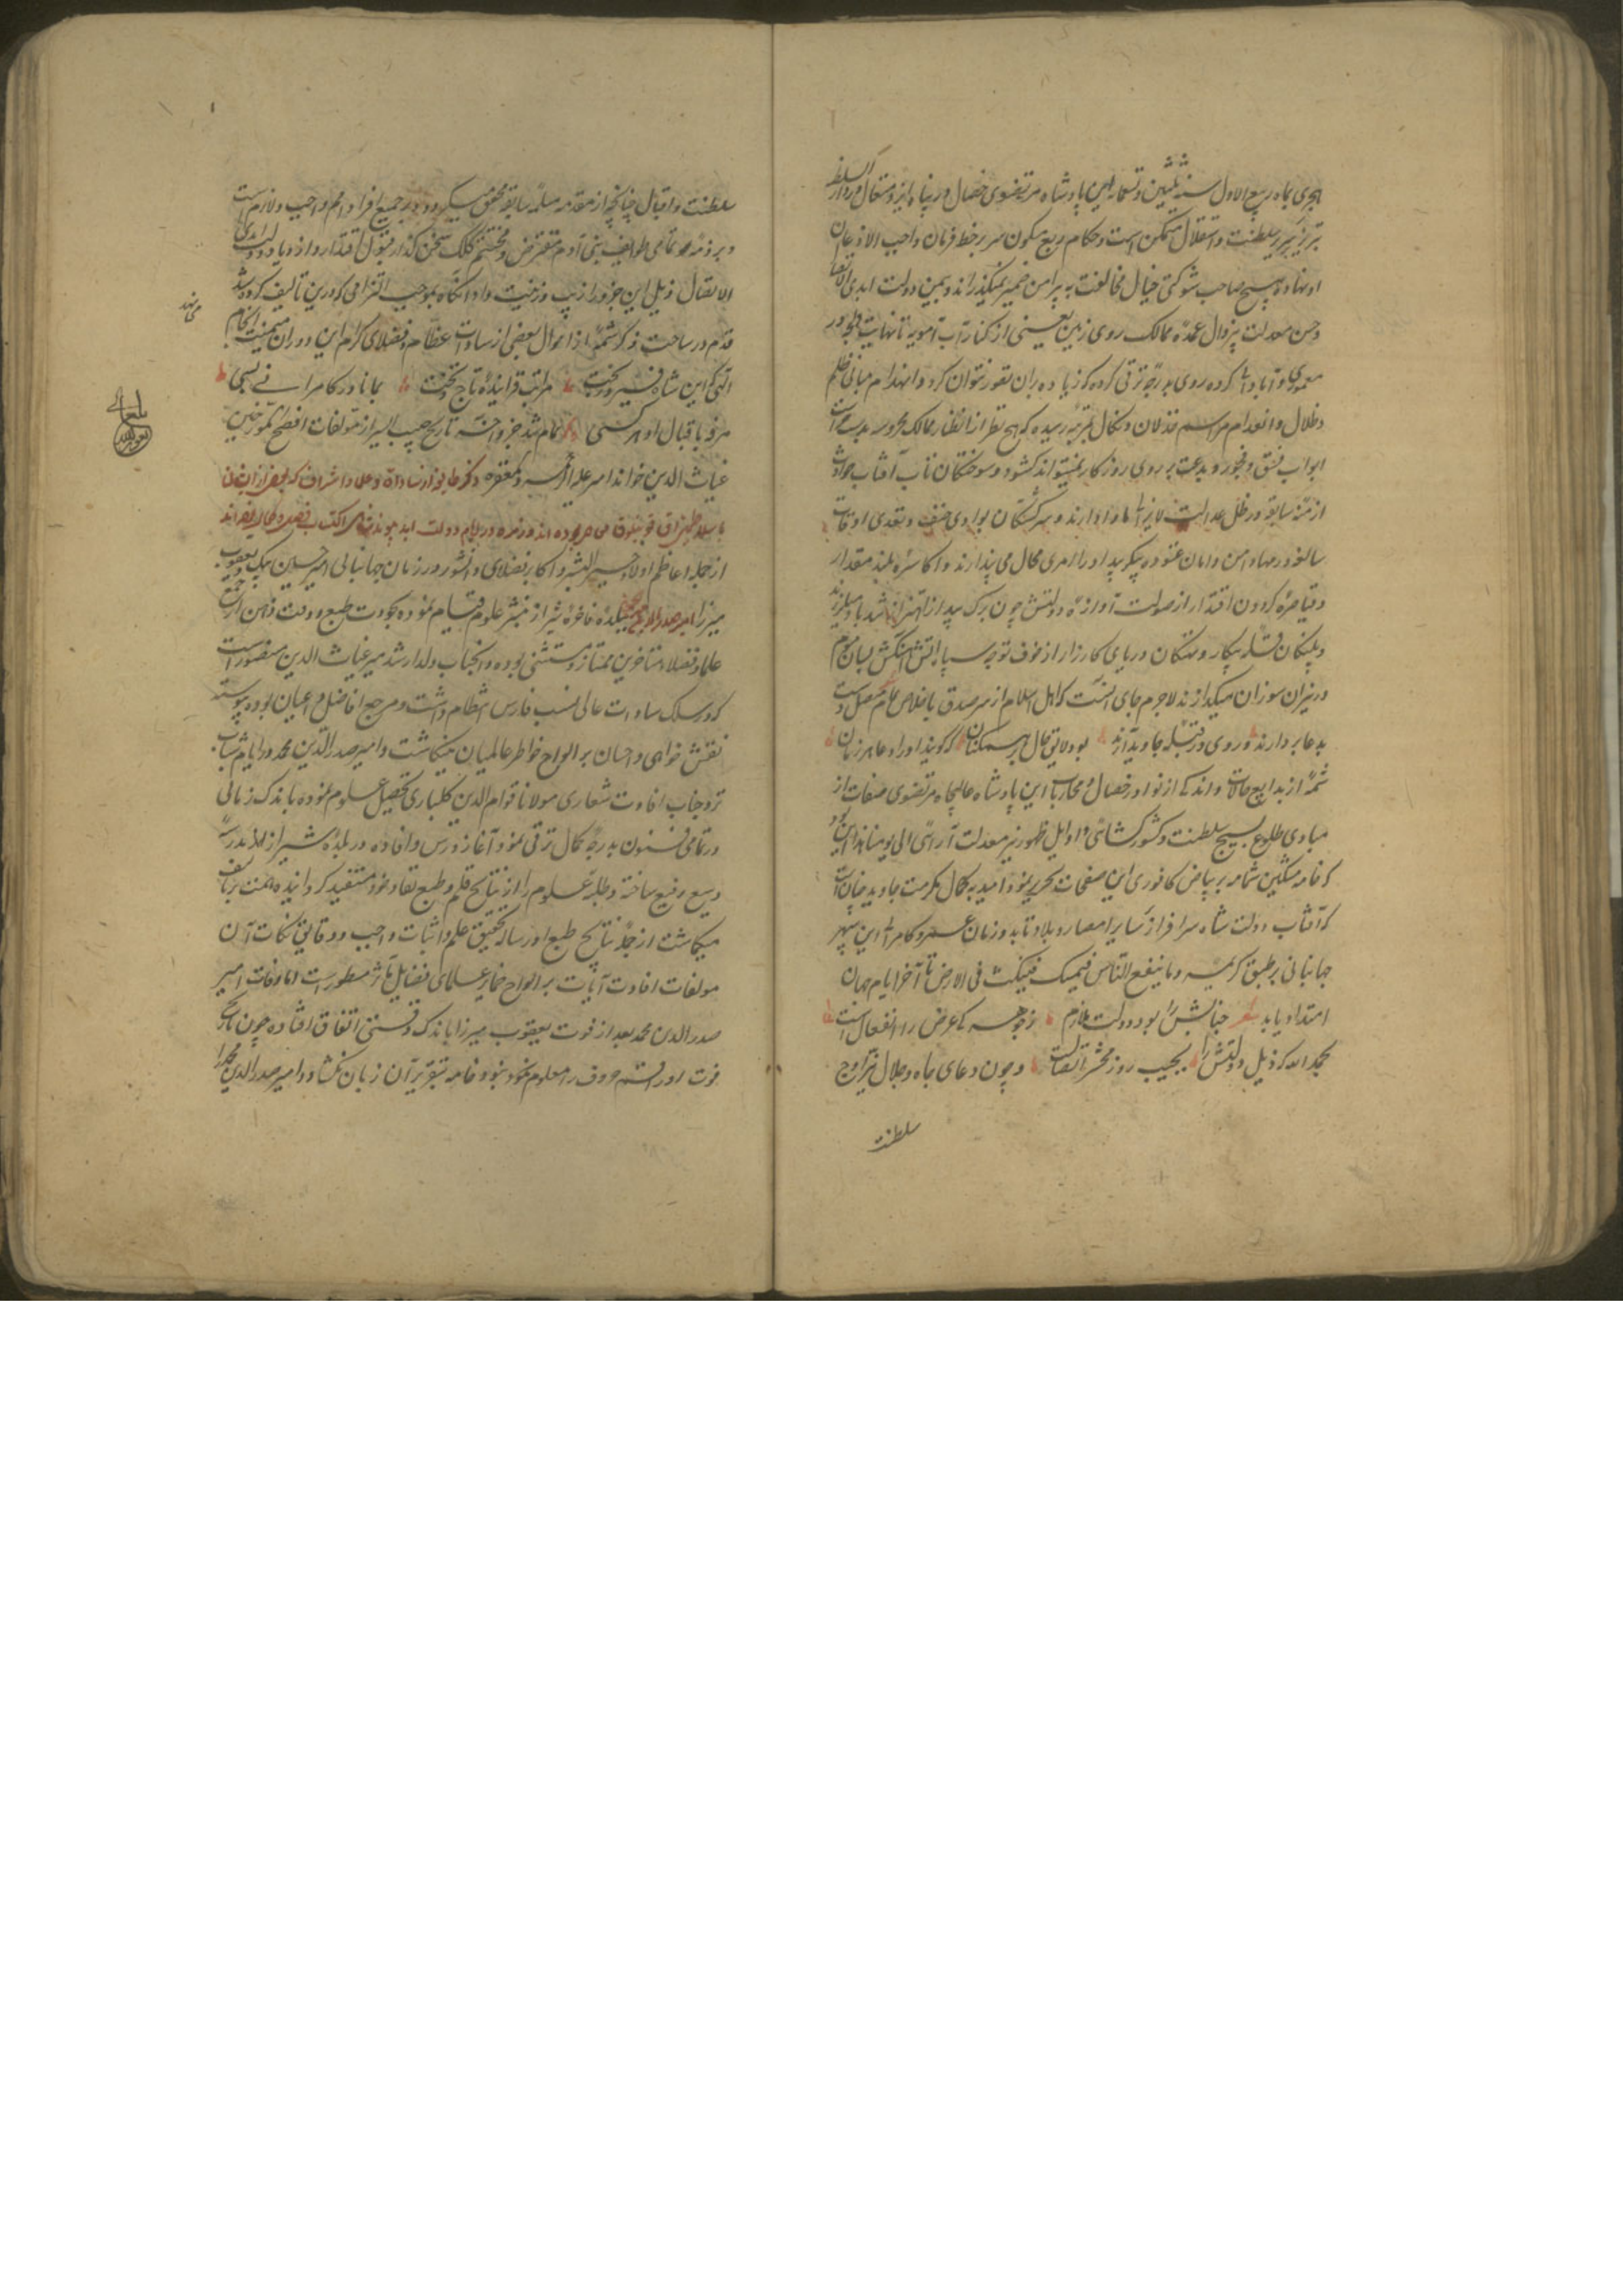 هجری بماه ربیع الاول سنه ثلثین و تسعمایه این پادشاه مرتضوی خصال در پناه ایزد متعال در دار السلطنه
تبریز بر سریر سلطنت و استقلال متمکن است و حکام ربع مسکون سر بر خط فرمان واجب الاذعان
او نهاده هیچ صاحب شوکتی خیال مخالفت به پیرامن ضمیر نمیگذراند و بیمن دولت ابدی الاتصال
و حسن معدلت بیزوال عمده ممالک روی زمین یعنی از کنار آب آمویه تا نهایت
معموری و آبادانی کرده روی بدرجه ترقی کرده که زیاده بران تصور نتوان کرد و انهدام مبانی ظلم
و ظلال و انعدام مراسم خذلان و نکال بمرتبه رسیده که هیچ نظر از انظار ممالک محروسه
ابواب فسق و فجور و بدعت بر روی روزکار نمیتواند کشود و سوختکان تاب آفتاب حوادث
ازمنه سابقه در ظل عدالت لا یزالی ماوا دارند و سرکشتکان بوادی حیف و تعدی اوقات
سالفه در مهاد امن و امان غنوده پیکر بیداد را امری محال می پندارند و اکاسره بلند مقدار
و قیاصره کردون اقتدار از صولت آوازه دولتش چون برک بید از اهتزاز شدباد میلرزند
و پلنکان قله پیکار و نهنکان دریای کارزار از خوف توجه سپاه آتش آهنکش بسان موم
در نیران سوزان میکدازند لاجرم جای آنست که اهل اسلام از سر صدق باخلاص تمام دست
بدعا بردارند و روی در قبله جاوید آرند بود لایق حال هر مسکنان که کویند او را دعا هر زمان
شمه از بدایع حالات و اندکی از نوادر خصال و محاربات این پادشاه عالیجاه مرتضوی صفات از
مبادی طلوع صبح سلطنت و کشورکشائی و اوایل ظهور نیر معدلت آرائی الی یومنا هذا این بود
که خامه مشکین شمامه بر بیاض کافوری این صفحات تحریر نمود امید بکمال مکرمت جاوید چنان است
که آفتاب دولت شاه سرافراز سایر امصار و بلاد تابد و زمان عمر و کامرانی این سپهر
جهانبانی بر طبق کریمه و ما ینفع الناس فیمکث فی الارض تا آخر ایام جهان
امتداد یابد شعر جنابش را بود دولت ملازم ز وجهی که عرض را انفعال است
بحمد الله که ذیل دولتش را بجیب روز محشر اتصالست و چون دعای جاه و جلال
سلطنت
سلطنت و اقبال چنانچه از مقدمه مسلمه سابقه محقق میکردد بر جمیع افراد امم واجب و لازم است
و بر ذمه تمامی طوایف بنی آدم مفترض و محتم کلک سخن کذار بقبول اقتدار و ازدیاد دولت ابدی
الاتصال ذیل این جزو را زیب و زینت داد آنکاه بموجب التزامی که درین تالیف کرده شد
قدم در ساحت ذکر شمه از احوال بعضی از سادات عظام و فضلای کرام این دوران میمنت انجام می نهد
الهی که این شاه فیروزبخت مراتب فزاینده تاج و تخت بماناد در کامرانی بسی
مرفه باقبال او هر کسی تمام شد جزو اخیر تاریخ حبیب السیر از مولفات افصح المورخین
غیاث الدین خواند امیر علیه الرحمه و المغفره ذکر طایفه از سادات و علما و اشراف که بعضی از ایشان
با سلاطین آق قوینلوق معاصر بوده اند و زمره در ایام دولت ابد پیوند شاهی اکتساب فضل و کمال نموده اند
از جمله اعاظم اولاد خیر البشر و اکابر فضلای دانشور در زمان جهانبانی امیر حسین بیک و یعقوب
میرزا امیر صدر الدین محمد ببلده فاخره شیراز بنشر علوم قیام نموده بجودت طبع و دقت ذهن از جمیع
علما و فضلاء متاخرین ممتاز و مستثنی بوده و آنجناب ولد ارشد میر غیاث الدین منصور است
که در سلک سادات عالی نسب فارس انتظام داشت و مرجع افاضل و اعیان بوده پیوسته
نقش خواهی و احسان بر الواح خواطر عالمیان مینکاشت و امیر صدر الدین محمد در ایام شباب
نزد جناب افادت شعاری مولانا قوام الدین کلباری تحصیل علوم نموده باندک زمانی
در تمامی فنون بدرجه کمال ترقی نمود و آغاز درس و افاده در بلده شیراز مدرسه
وسیع رفیع ساخته و طلبه علوم را از نتایج قلم و طبع نقاد خود مستفید کردانیده همت بر تالیف
میکماشت از جمله نتایج طبع او رساله تحقیق علم و اثبات واجب و دقایق نکات آن
مولفات افادت آیات بر الواح ضمایر علمای فضایل مآثر مسطور است اما وفات امیر
صدر الدین محمد بعد از فوت یعقوب میرزا باندک وقتی اتفاق افتاده چون تاریخ
فوت او راقم حروف را معلوم نبود خامه بتقریر آن زبان نکشاد و امیر صدر الدین محمد را